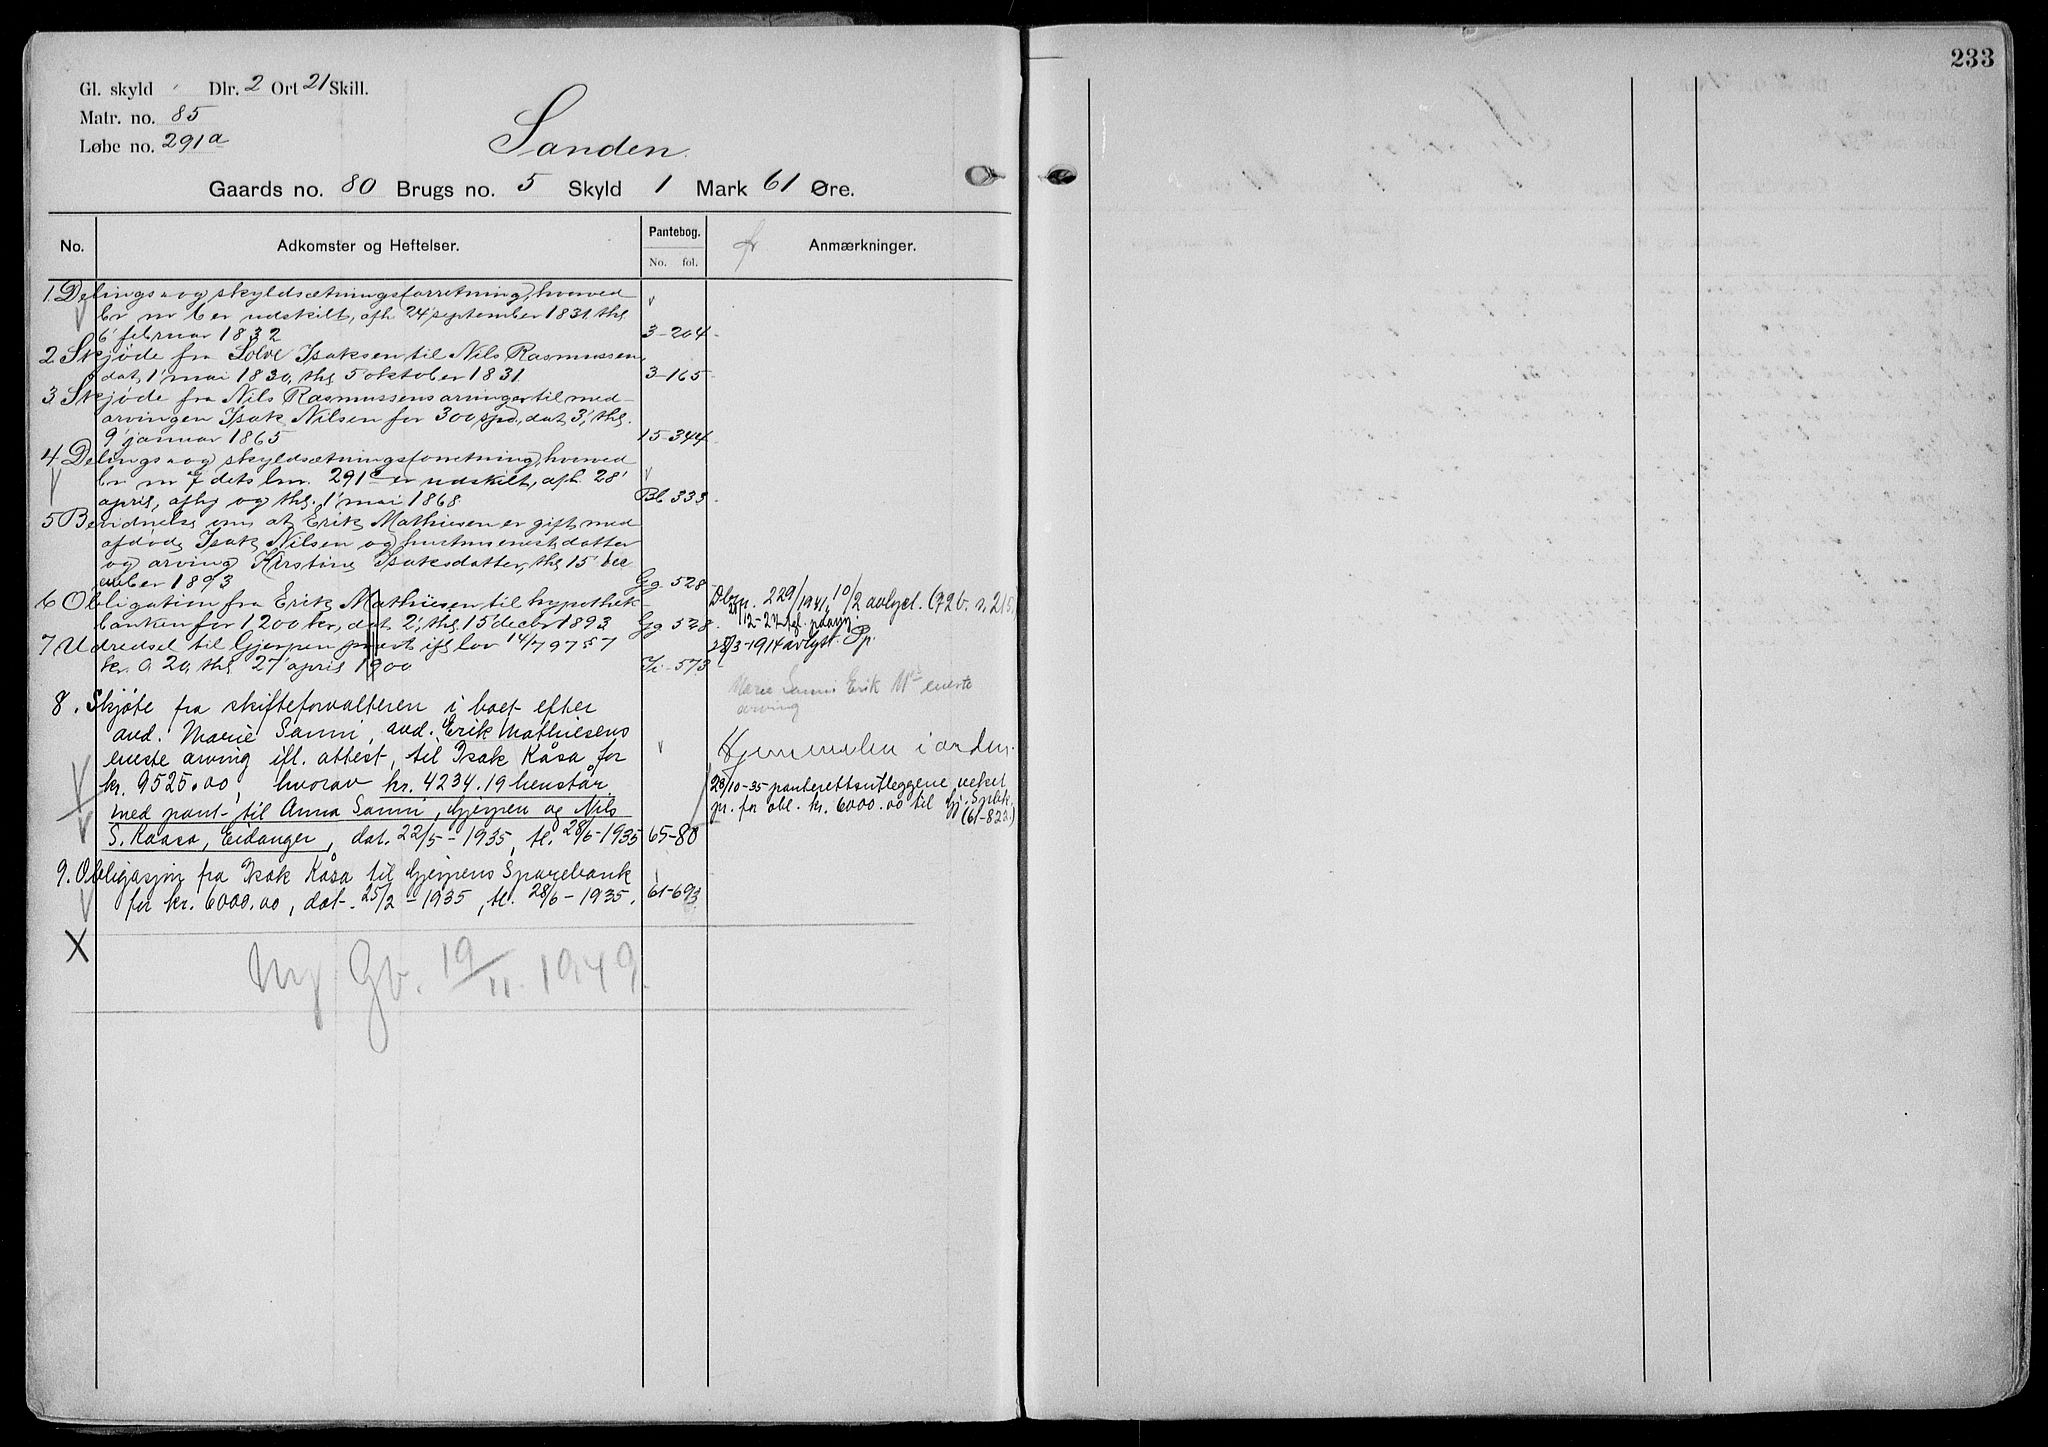 233
Gl. skyld Dlr. 2 Ort 21 Skill.
Matr. no. 85
Løbe no. 291a
Sanden
Gaards no. 80 Brugs no. 5 Skyld 1 Mark 61 Øre.
No. Adkomster og Heftelser. Pantebog. No. fol. Anmærkninger.
1. Delings- og skyldsætningsforretning, hvorved
br nr 6 er udskilt, afh 24 september 1831 thl
6' februar 1832 3-204
2 Skjøde fra Solve Isaksen til Nils Rasmussen,
dat, 1' mai 1830, thl 5 oktober 1831. 3-165
3 Skjøde fra Nils Rasmussens arvinger til med-
arvingen Isak Nilsen for 300 spd, dat 3', thl.
9' januar 1865 15-344
4. Delings- og skyldsætningsforretning, hvorved
br nr 7 dets lnr. 291c er udskilt, afh 28'
april, afhj og thl. 1' mai 1868. Bb 333
5 Bevidnelse om at Erik Mathiesen er gift med
afdøde Isak Nilsen og hustrus eneste datter
og arving Kirstine Isaksdatter, thl 15' dec
ember 1893 Gg 528
6 Obligation fra Erik Mathiesen til hypothek-
banken for 1200 kr, dat 2', thl. 15' decbr 1893 Gg 528.
229/1941, 10/2 avlyst.
7 Udredsel til Gjerpen prest ifl lov 14/7 9757
kr. 0.20, thl 27' april 1900 573
28/3-1914 avlyst.
Marie Sanni Erik M enerste
arving
8. Skjøte fra skifteforvalteren i boet efter
avd. Marie Sanni, avd. Erik Mathiesens
eneste arving ifl. attest, til Isak Kåsa for
kr. 9525.00, hvorav kr. 4234.19 henstår
med pant til Anna Sanni, Gjerpen og Nils
S. Kaasa, Eidanger, dat. 22/5-1935, tl. 28/6-1935 65-80
Hjemmelen i orden.
23/10-35 panterettsutleggene veket
pr. for obl. kr. 6000.00 til Gj. Spbk.
(61-822)
9. Obligasjon fra Isak Kåsa til Gjerpens Sparebank
for kr. 6000.00, dat. 25/2-1935, tl. 28/6-1935. 61-693
X
Ny Gb. 19/11. 1949.